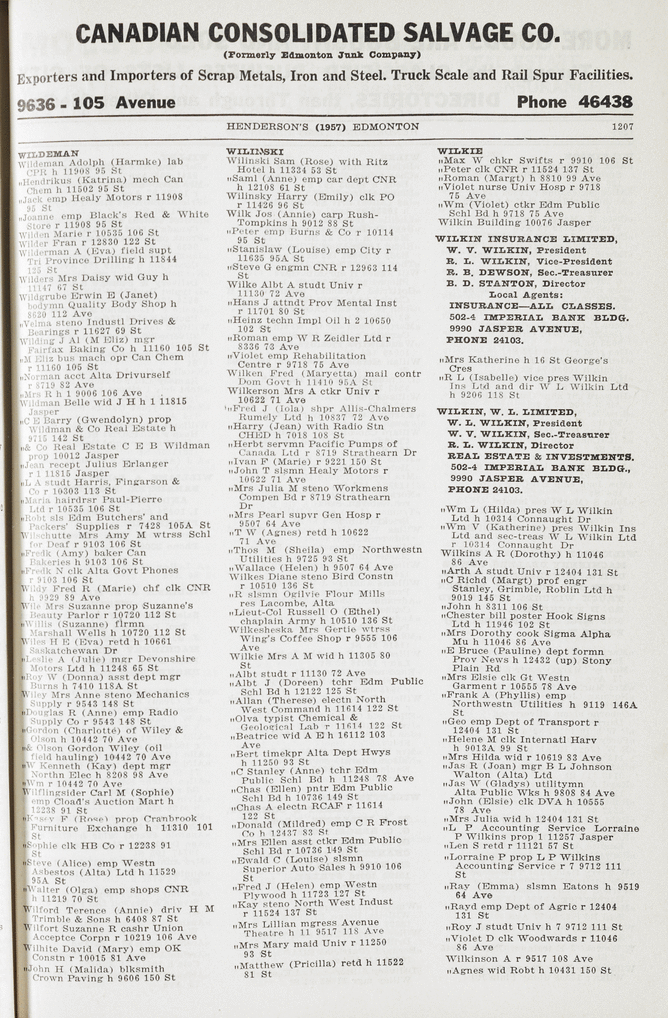 CANADIAN CONSOLIDATED SALVAGE CO.
(Formerly Edmonton Junk Company)
Exporters and Importers of Scrap Metals, Iron and Steel. Truck Scale and Rail Spur Facilities.
9636 - 105 Avenue Phone 46438
HENDERSON'S (1957) EDMONTON 1207
WILDEMAN
Wildeman Adolph (Harmke) lab
CPR h 11908 95 St
„Hendrikus (Katrina) mech Can
Chem h 11502 95 St
„Jack emp Healy Motors r 11908
95 St
„Joanne emp Black's Red & White
Store r 11908 95 St
Wilden Marie r 10535 106 St
Wilder Fran r 12830 122 St
Wilderman A (Eva) field supt
Tri Province Drilling h 11844
125 St
Wilders Mrs Daisy wid Guy h
11147 67 St
Wildgrube Erwin E (Janet)
bodymn Quality Body Shop h
8629 112 Ave
„Velma steno Industl Drives &
Bearings r 11627 69 St
Wilding J Al (M Eliz) mgr
Fairfax Baking Co h 11160 105 St
„M Eliz bus mach opr Can Chem
r 11160 105 St
„Norman acct Alta Drivurself
r 8719 82 Ave
„Mrs R h 1 9006 106 Ave
Wildman Belle wid J H h 1 11815
Jasper
„C E Barry (Gwendolyn) prop
Wildman & Co Real Estate h
9715 142 St
„& Co Real Estate C E B Wildman
prop 10012 Jasper
„Jean recept Julius Erlanger
r 1 11815 Jasper
„L A studt Harris, Fingarson &
Co r 10303 113 St
„Maria hairdrsr Paul-Pierre
Ltd r 10535 106 St
„Robt sls Edm Butchers' and
Packers' Supplies r 7428 105A St
Wilschutte Mrs Amy M wtrss Schl
for Deaf r 9103 106 St
„Fredk (Amy) baker Can
Bakeries h 9103 106 St
„Fredk N clk Alta Govt Phones
r 9103 106 St
Wildy Fred R (Marie) chf clk CNR
h 9929 89 Ave
Wile Mrs Suzanne prop Suzanne's
Beauty Parlor r 10720 112 St
„Willis (Suzanne) flrmn
Marshall Wells h 10720 112 St
Wiles H E (Eva) retd h 10661
Saskatchewan Dr
„Leslie A (Julie) mgr Devonshire
Motors Ltd h 11248 65 St
„Roy W (Donna) asst dept mgr
Burns h 7410 118A St
Wiley Mrs Anne steno Mechanics
Supply r 9543 148 St
„Douglas R (Anne) emp Radio
Supply Co r 9543 148 St
„Gordon (Charlotte) of Wiley &
Olson h 10442 70 Ave
„& Olson Gordon Wiley (oil
field hauling) 10442 70 Ave
„W Kenneth (Kay) dept mgr
Northn Elec h 8208 98 Ave
„Wm r 10442 70 Ave
Wilflingsider Carl M (Sophie)
emp Cload's Auction Mart h
12238 91 St
„Kasey F (Rose) prop Cranbrook
Furniture Exchange h 11310 101
St
„Sophie clk HB Co r 12238 91
St
„Steve (Alice) emp Westn
Asbestos (Alta) Ltd h 11529
95A St
„Walter (Olga) emp shops CNR
h 11219 70 St
Wilford Terence (Annie) driv H M
Trimble & Sons h 6408 87 St
Wilfort Suzanne R cashr Union
Acceptce Corpn r 10219 106 Ave
Wilhite David (Mary) emp OK
Constn r 10015 81 Ave
„John H (Malida) blksmith
Crown Paving h 9606 150 St
WILINSKI
Wilinski Sam (Rose) with Ritz
Hotel h 11334 53 St
„Saml (Anne) emp car dept CNR
h 12108 61 St
Wilinsky Harry (Emily) clk PO
r 11426 96 St
Wilk Jos (Annie) carp Rush-
Tompkins h 9012 88 St
„Peter emp Burns & Co r 10114
95 St
„Stanislaw (Louise) emp City r
11635 95A St
„Steve G engmn CNR r 12963 114
St
Wilke Albt A studt Univ r
11130 72 Ave
„Hans J attndt Prov Mental Inst
r 11701 80 St
„Heinz techn Impl Oil h 2 10650
102 St
„Roman emp W R Zeidler Ltd r
8336 73 Ave
„Violet emp Rehabilitation
Centre r 9718 75 Ave
Wilken Fred (Maryetta) mail contr
Dom Govt h 11410 95A St
Wilkerson Mrs A ctkr Univ r
10622 71 Ave
„Fred J (Iola) shpr Allis-Chalmers
Rumely Ltd h 10837 72 Ave
„Harry (Jean) with Radio Stn
CHED h 7018 108 St
„Herbt servmn Pacific Pumps of
Canada Ltd r 8719 Strathearn Dr
„Ivan F (Marie) r 9221 150 St
„John T slsmn Healy Motors r
10622 71 Ave
„Mrs Julia M steno Workmens
Compen Bd r 8719 Strathearn
Dr
„Mrs Pearl supvr Gen Hosp r
9507 64 Ave
„T W (Agnes) retd h 10622
71 Ave
„Thos M (Sheila) emp Northwestn
Utilities h 9725 93 St
„Wallace (Helen) h 9507 64 Ave
Wilkes Diane steno Bird Constn
r 10510 136 St
„R slsmn Ogilvie Flour Mills
res Lacombe, Alta
„Lieut-Col Russell O (Ethel)
chaplain Army h 10510 136 St
Wilkesheska Mrs Gertie wtrss
Wing's Coffee Shop r 9555 106
Ave
Wilkie Mrs A M wid h 11305 80
St
„Albt studt r 11130 72 Ave
„Albt J (Doreen) tchr Edm Public
Schl Bd h 12122 125 St
„Allan (Therase) electn North
West Command h 11614 122 St
„Olva typist Chemical &
Geological Lab r 11614 122 St
„Beatrice wid A E h 16112 103
Ave
„Bert timekpr Alta Dept Hwys
h 11250 93 St
„C Stanley (Anne) tchr Edm
Public Schl Bd h 11248 78 Ave
„Chas (Ellen) pntr Edm Public
Schl Bd h 10736 149 St
„Chas A electn RCAF r 11614
122 St
„Donald (Mildred) emp C R Frost
Co h 12437 83 St
„Mrs Ellen asst ctkr Edm Public
Schl Bd r 10736 149 St
„Ewald C (Louise) slsmn
Superior Auto Sales h 9910 106
St
„Fred J (Helen) emp Westn
Plywood h 11723 127 St
„Kay steno North West Indust
r 11524 137 St
„Mrs Lillian mgress Avenue
Theatre h 11 9517 118 Ave
„Mrs Mary maid Univ r 11250
93 St
„Matthew (Pricilla) retd h 11522
81 St
WILKIE
„Max W chkr Swifts r 9910 106 St
„Peter clk CNR r 11524 137 St
„Roman (Margt) h 8810 99 Ave
„Violet nurse Univ Hosp r 9718
75 Ave
„Wm (Violet) ctkr Edm Public
Schl Bd h 9718 75 Ave
Wilkin Building 10076 Jasper
WILKIN INSURANCE LIMITED,
W. V. WILKIN, President
R. L. WILKIN, Vice-President
R. B. DEWSON, Sec.-Treasurer
B. D. STANTON, Director
Local Agents:
INSURANCE—ALL CLASSES.
502-4 IMPERIAL BANK BLDG.
9990 JASPER AVENUE,
PHONE 24103.
„Mrs Katherine h 16 St George's
Cres
„R L (Isabelle) vice pres Wilkin
Ins Ltd and dir W L Wilkin Ltd
h 9206 118 St
WILKIN, W. L. LIMITED,
W. L. WILKIN, President
W. V. WILKIN, Sec.-Treasurer
R. L. WILKIN, Director
REAL ESTATE & INVESTMENTS.
502-4 IMPERIAL BANK BLDG.,
9990 JASPER AVENUE,
PHONE 24103.
„Wm L (Hilda) pres W L Wilkin
Ltd h 10314 Connaught Dr
„Wm V (Katherine) pres Wilkin Ins
Ltd and sec-treas W L Wilkin Ltd
r 10314 Connaught Dr
Wilkins A R (Dorothy) h 11046
86 Ave
„Arth A studt Univ r 12404 131 St
„C Richd (Margt) prof engr
Stanley, Grimble, Roblin Ltd h
9019 145 St
„John h 8311 106 St
„Chester bill poster Hook Signs
Ltd h 11946 102 St
„Mrs Dorothy cook Sigma Alpha
Mu h 11046 86 Ave
„E Bruce (Pauline) dept formn
Prov News h 12432 (up) Stony
Plain Rd
„Mrs Elsie clk Gt Westn
Garment r 10555 78 Ave
„Frank A (Phyllis) emp
Northwestn Utilities h 9119 146A
St
„Geo emp Dept of Transport r
12404 131 St
„Helene M clk Internatl Harv
h 9013A 99 St
„Mrs Hilda wid r 10619 83 Ave
„Jas R (Joan) mgr B L Johnson
Walton (Alta) Ltd
„Jas W (Gladys) utilitymn
Alta Public Wks h 9808 84 Ave
„John (Elsie) clk DVA h 10555
78 Ave
„Mrs Julia wid h 12404 131 St
„L P Accounting Service Lorraine
P Wilkins prop 1 11257 Jasper
„Len S retd r 11121 57 St
„Lorraine P prop L P Wilkins
Accounting Service r 7 9712 111
St
„Ray (Emma) slsmn Eatons h 9519
64 Ave
„Rayd emp Dept of Agric r 12404
131 St
„Roy J studt Univ h 7 9712 111 St
„Violet D clk Woodwards r 11046
86 Ave
Wilkinson A r 9517 108 Ave
„Agnes wid Robt h 10431 150 St